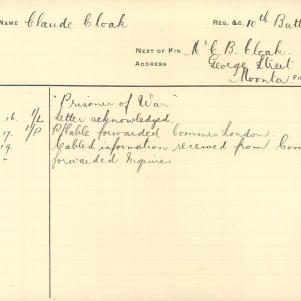 NAME Claude Cloak REG. &C. 10th Batt
NEXT OF KIN Mr E B. Cloak.
ADDRESS George Street
Moonta
"Prisoner of War"
16. 1/L Letter acknowledged.
17. 1/P P/Cable forwarded Commr London.
19. Cabled information received from Com
" forwarded